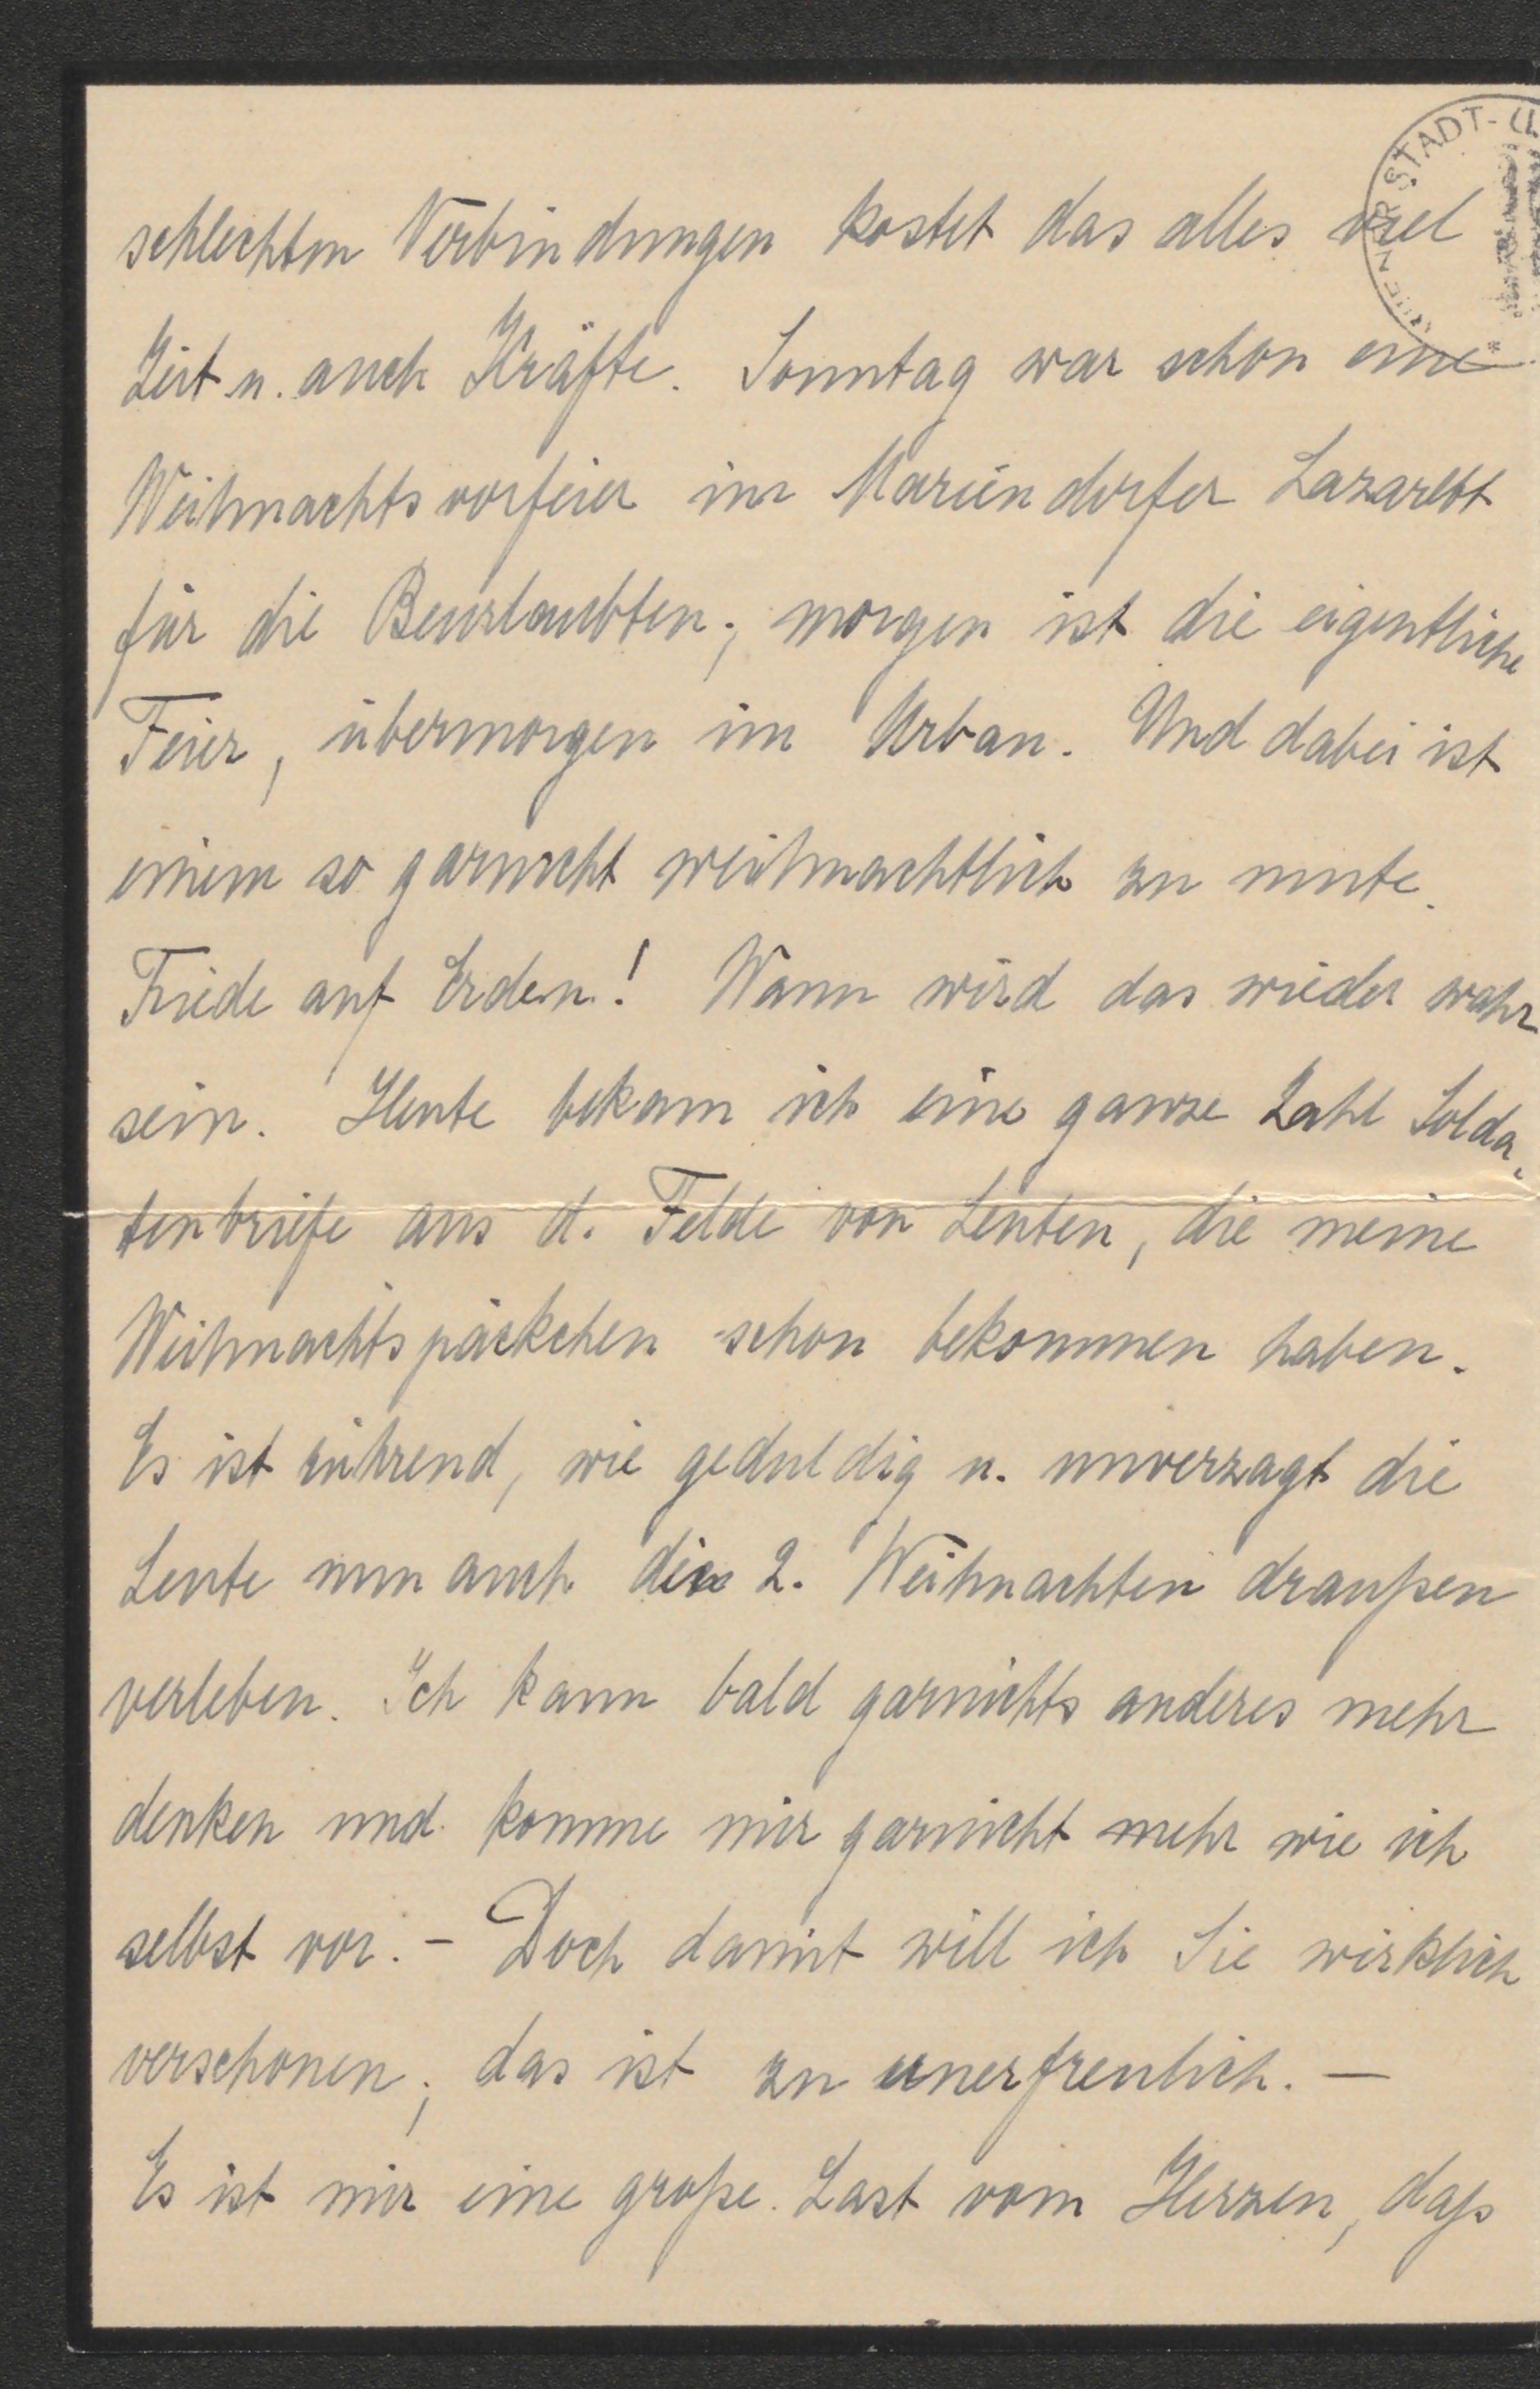 schlechten Verbindungen kostet das alles viel
Zeit u. auch Kräfte. Sonntag war schon eine
Weihnachtsvorfeier im Mariendorfer Lazarett
für die Beurlaubten; morgen ist die eigentliche
Feier, übermorgen im Urban. Und dabei ist
einem so garnicht weihnachtlich zu mute.
Friede auf Erden! Wann wird das wieder wahr
sein. Heute bekam ich eine ganze Zahl Solda-
tenbriefe aus d. Felde von Leuten, die meine
Weihnachtspäckchen schon bekommen haben.
Es ist rührend, wie geduldig u. unverzagt die
Leute nun auch die 2. Weihnachten draußen
verleben. Ich kann bald garnichts anderes mehr
denken und komme mir garnicht mehr wie ich
selbst vor. – Doch damit will ich Sie wirklich
verschonen; das ist zu unerfreulich. —
Es ist mir eine große Last vom Herzen, daß
STADT-